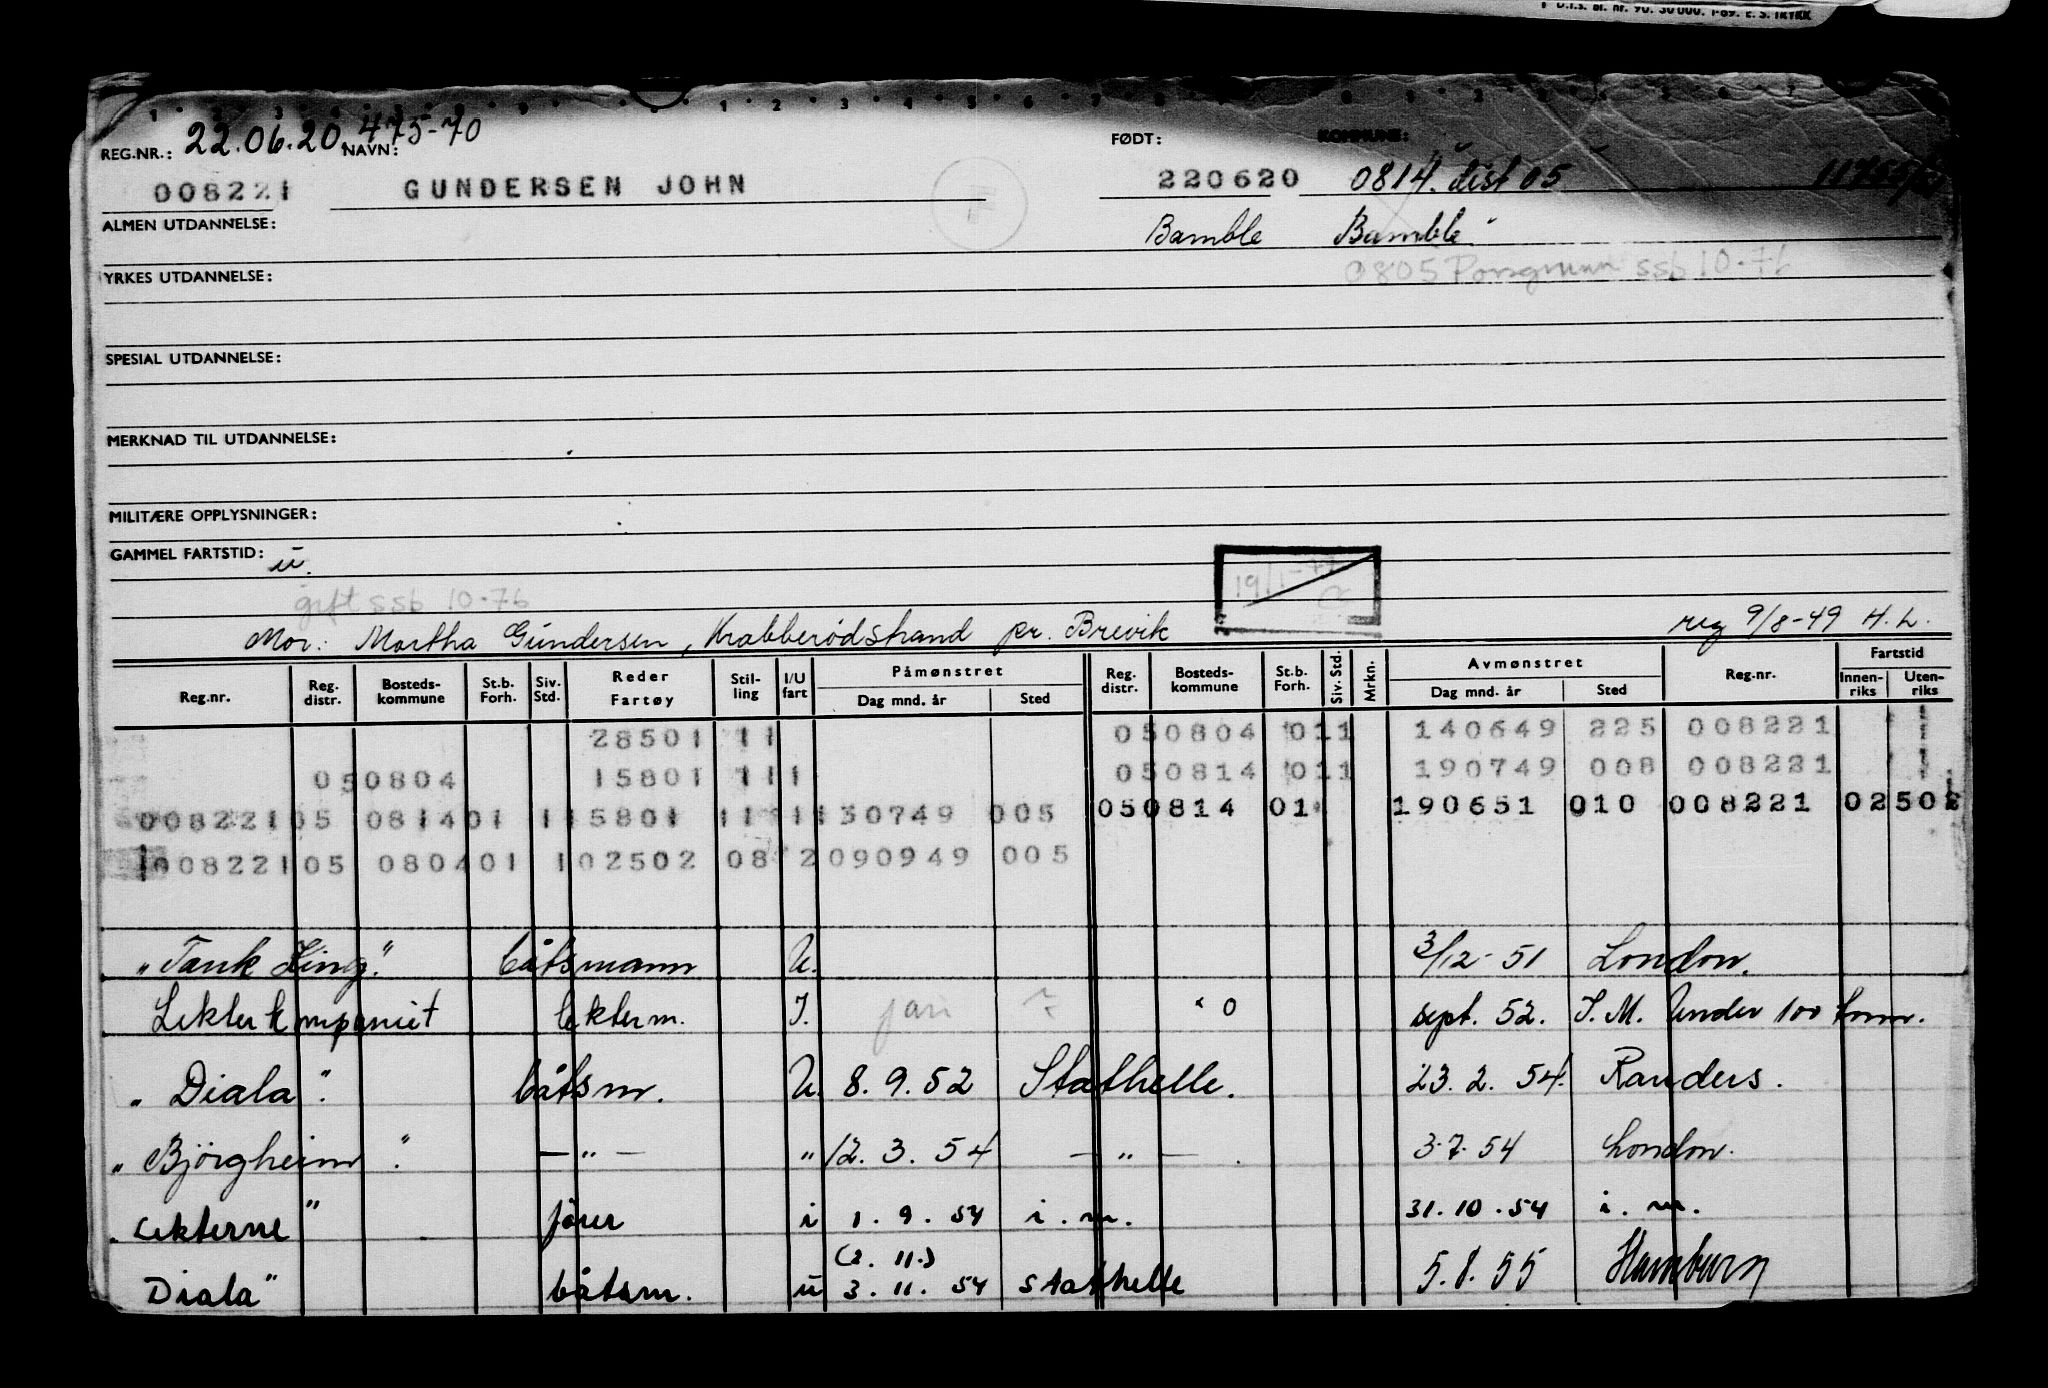 D.T.S. bl. nr. 90. 50 000. 1-69. E. S. TRYKK
REG.NR.: 22.06.20. 475-70 NAVN: FØDT: KOMMUNE:
008221 GUNDERSEN JOHN 220620 0814. dist 05
ALMEN UTDANNELSE: Bamble Bamble
YRKES UTDANNELSE: 0805 Porsgrunn ssb 10-76
SPESIAL UTDANNELSE:
MERKNAD TIL UTDANNELSE:
MILITÆRE OPPLYSNINGER:
GAMMEL FARTSTID: u.
gift ssb 10-76 19/1-77
Mor: Martha Gundersen, Krabberødstrand pr. Brevik reg 9/8-49 H.L.
Reg.nr. Reg. distr. Bosteds-kommune St.b. Forh. Siv. Std. Reder Fartøy Stil-ling I/U fart Påmønstret Dag mnd. år Sted Reg. distr. Bosteds-kommune St.b. Forh. Siv. Std. Mrkn. Avmønstret Dag mnd. år Sted Reg.nr. Fartstid Innen-riks Uten-riks
28501 11 050804 011 140649 225 008221
050804 15801 111 050814 011 190749 008 008221
008221 05 0814 01 1 15801 11 1 130749 005 050814 01 190651 010 008221 02502
008221 05 0804 01 1 02502 08 2 090949 005
"Tank King" båtsmann U. 3/12-51 London.
Lekterkompaniet lekterm. I. jan "0 sept. 52. I.M. Under 100 tonn.
"Diala". båtsm. U. 8.9.52 Stathelle. 23.2.54. Randers.
"Björgheim". — " — " 12.3.54 — " — . 3.7.54 London.
"Lekterne" fører i 1.9.54 i.m. 31.10.54 i.m.
(2.11.)
Diala" båtsm. u 3.11.54 Stathelle 5.8.55 Hamburg